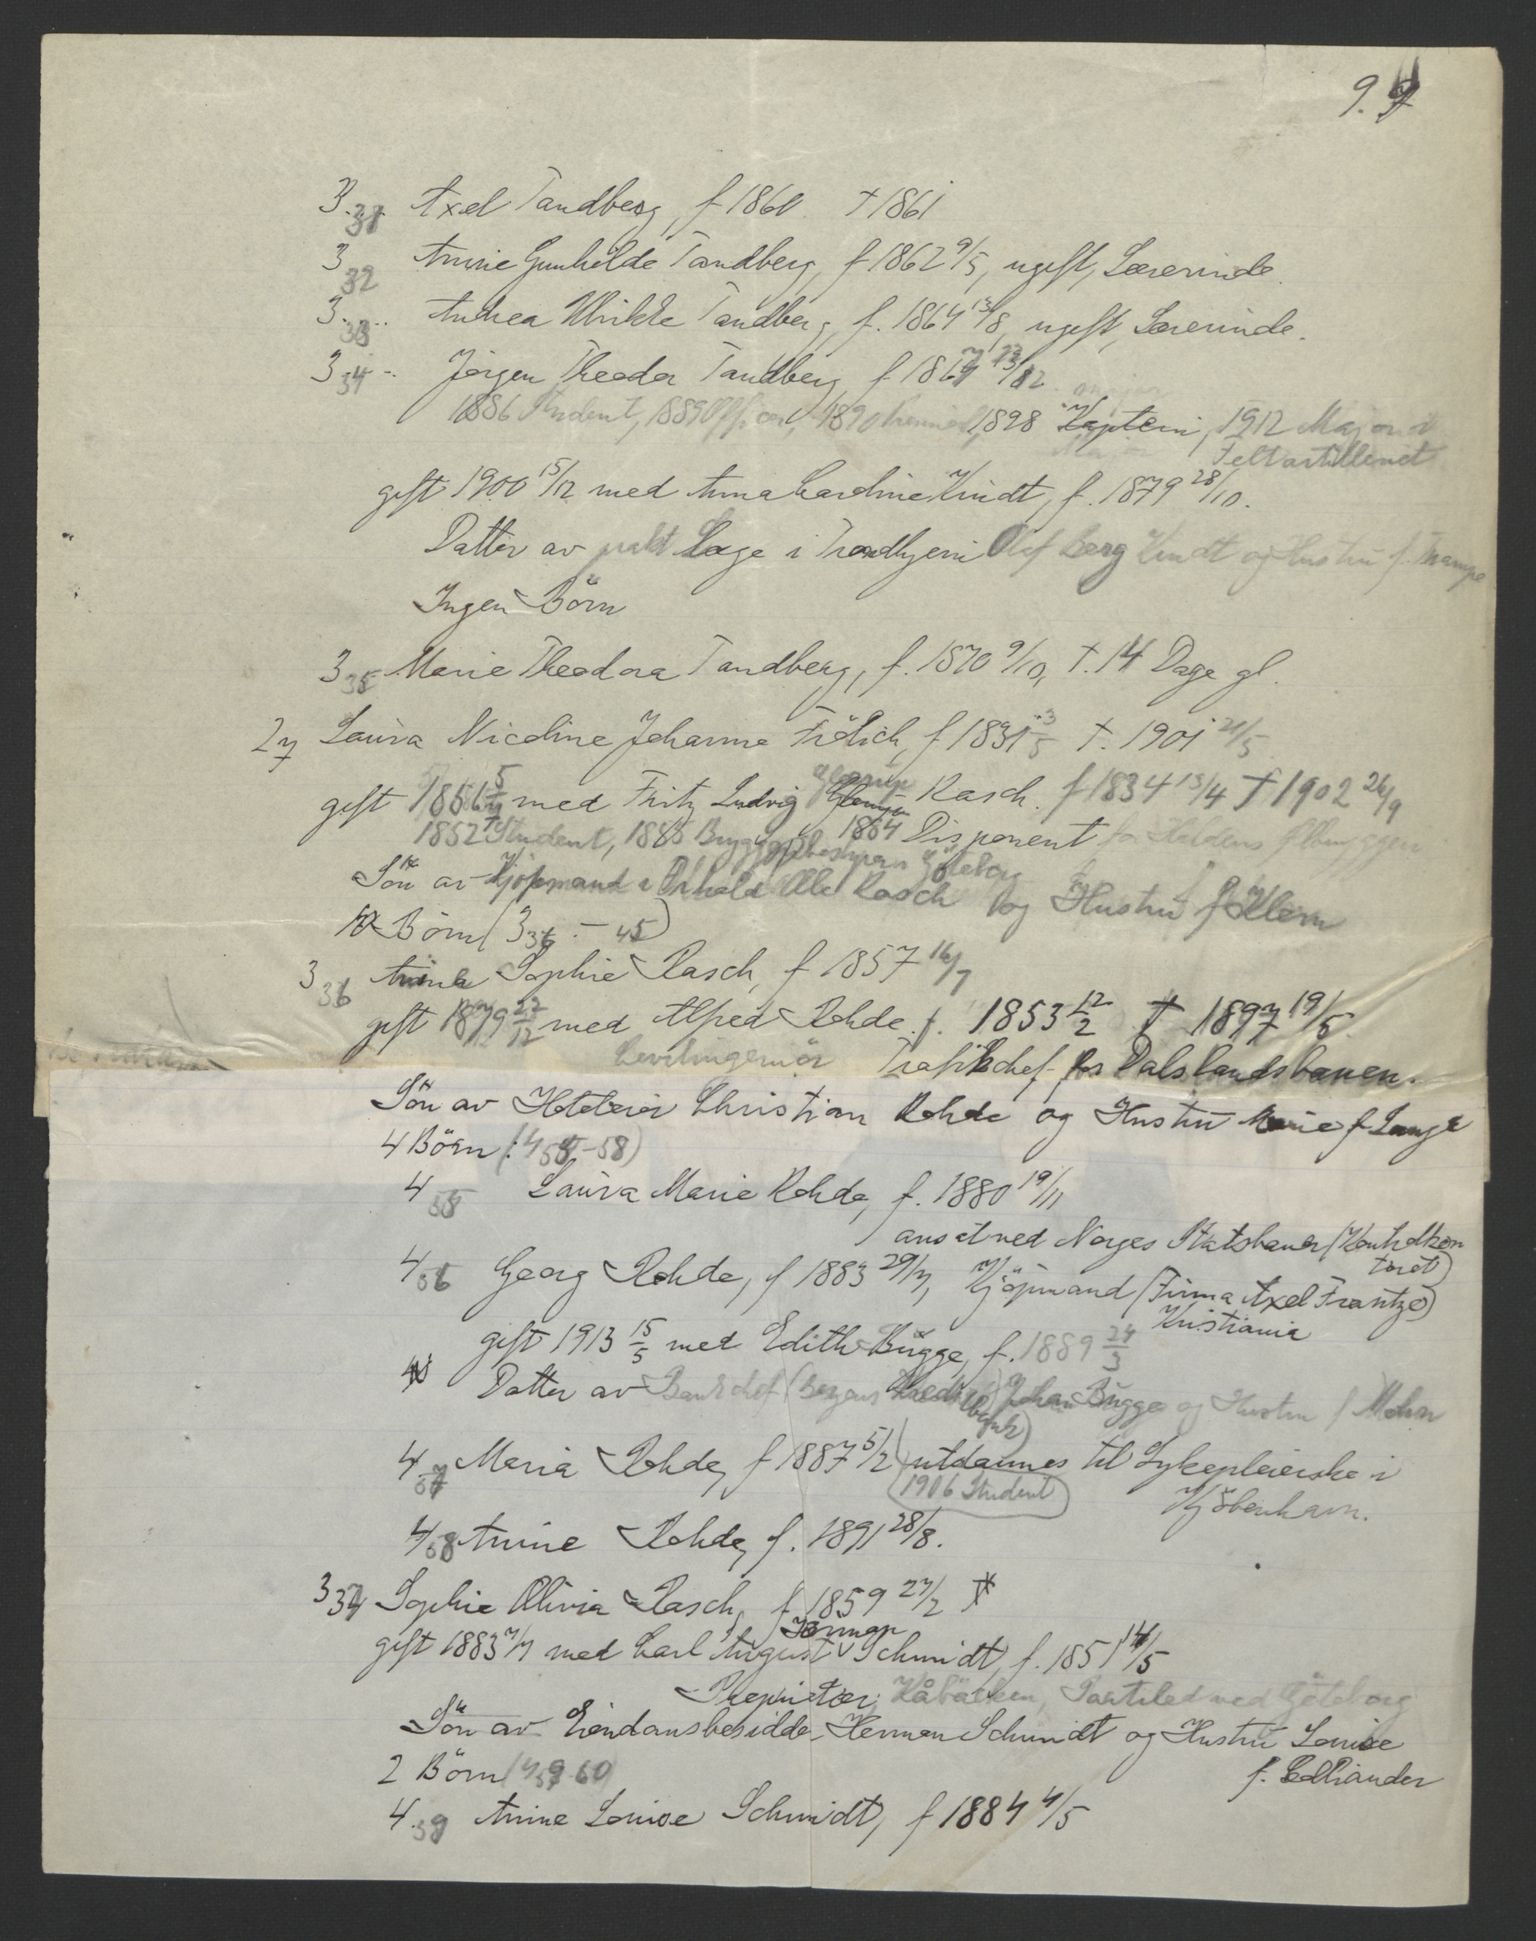 9.
3.31 Axel Tandberg, f 1860. † 1861
3 32 Anine Gunhilde Tandberg, f 1862 9/5, ugift, Lærerinde.
3 33 Andrea Ulrikke Tandberg, f. 1864 13/8, ugift, Lærerinde.
3 34 Jörgen Theodor Tandberg f 1867 /12
1886 Student, 1889 Officer, 1890 1898 Kaptein, 1912 Major i
Feltartilleriet
gift 1900 15/12 med Anna Caroline Kindt, f. 1879 28/10.
Datter av prakt Læge i Trondhjem Olaf Berg Kindt og Hustru f. Trampe
Ingen Börn
3 35 Marie Theodora Tandberg, f. 1870 9/10, †. 14 Dage gl.
2 7 Laura Nicoline Johanne Frölich, f 1831 3/5 †. 1901 21/5
gift 1856 5/ med Fritz Ludvig Glerup Rasch. f 1834 13/4 † 1902 26/9
1852 Student, 1885 Bryggeribestyrer Göteborg 1864 Disponent for Haldens
Sön av Kjöpmand i Ole Rasch og Hustru f Klem
Börn (3 36 - 45)
3 36 Anine Sophie Rasch, f 1857 16/7
gift 1879 27/12 med Alfred Rohde f. 1853 12/2 † 1897 19/5.
Civilingeniör Trafikchef for Dalslandsbanen.
Sön av Hoteleier Christian Rohde og Hustru Marie f Lange
4 Börn: (4 55-58)
4 55 Laura Marie Rohde, f. 1880 19/11
ansat ved Norges Statsbaner (Kontrolkon
toret)
4 56 Georg Rohde, f 1883 29/7, Kjöpmand (Firma Axel Frantze)
Kristiania
gift 1913 15/5 med Edith Bügge, f. 1889 24/3
Datter av Bankchef (Bergens Kreditbank) Johan Bügge og Hustru f Mohn
4 57 Maria Rohde, f 1887 5/2 utdannes til Sykepleierske i
(1906 Student) Kjöbenhavn.
4 58 Anine Rohde, f. 1891 28/8.
3 37 Sophie Olivia Rasch, f 1859 27/2
gift 1883 7/7 med Carl August Herman Schmidt, f. 1851 14/5
Proprietær, Kåbäcken, Partiled ved Göteborg
Sön av Eiendomsbesidder Herman Schmidt og Hustru Louise
f. Colliander
2 Börn (4 59-60)
4.59 Anine Louise Schmidt, f 1884 4/5